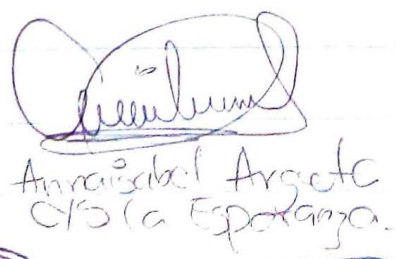 Annaisabel Argeta
C/S la Esperanza.